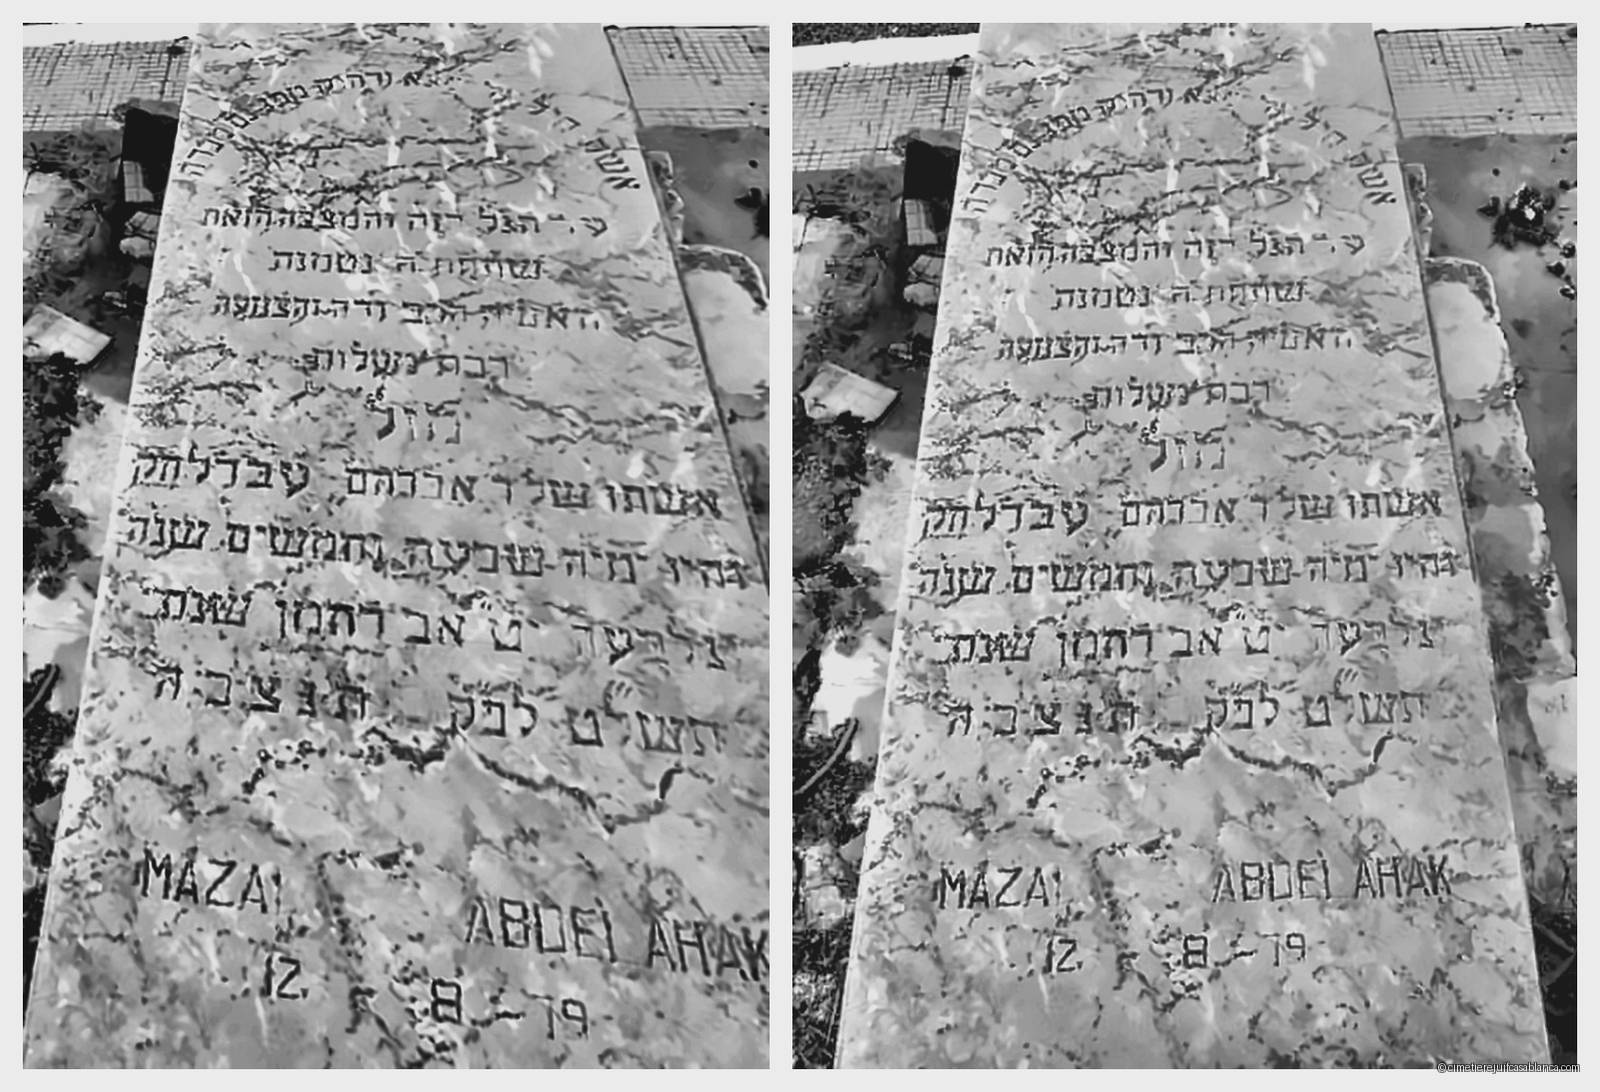 אשת חיל ורחוק מפנינים מכרה
הגל הזה והמצבה הזאת
שתחתיה נטמנת
האשה הכבודה והצנועה
רבת מעלות
מזל
אשתו של ר אברהם עבדלחק
והיו ימיה שבעה וחמשים שנה
י״ט אב רחמן שנת
תשל״ט לפ״ק ת נ צ ב ה
MAZAL ABDEL AHAK
12. 8 - 79
אשת חיל ורחוק מפנינים מכרה
הגל הזה והמצבה הזאת
שתחתיה נטמנת
האשה הכבודה והצנועה
רבת מעלות
מזל
אשתו של ר אברהם עבדלחק
והיו ימיה שבעה וחמשים שנה
י״ט אב רחמן שנת
תשל״ט לפ״ק ת נ צ ב ה
MAZAL ABDEL AHAK
12. 8 - 79
©cimetierejuifcasablanca.com